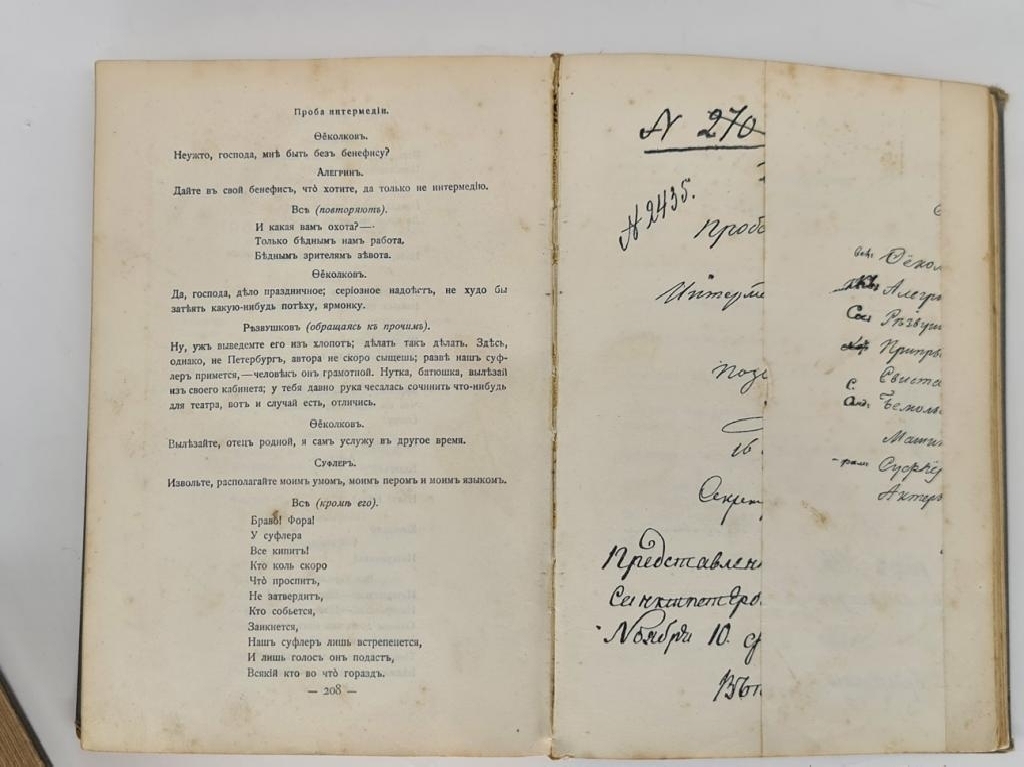 Проба интермедіи.
Ѳёколковъ.
Неужто, господа, мнѣ быть безъ бенефису?
Алегринъ.
Дайте въ свой бенефисъ, что̀ хотите, да только не интермедію.
Всѣ (повторяютъ).
И какая вамъ охота?—
Только бѣднымъ намъ работа,
Бѣднымъ зрителямъ зѣвота.
Ѳёколковъ.
Да, господа, дѣло праздничное; серіозное надоѣстъ, не худо бы
затѣять какую-нибудь потѣху, ярмонку.
Рѣзвушковъ (обращаясь къ прочимъ).
Ну, ужъ выведемте его изъ хлопотъ; дѣлать такъ дѣлать. Здѣсь,
однако, не Петербургъ, автора не скоро сыщешь; развѣ нашъ суф-
леръ примется,—человѣкъ онъ грамотной. Нутка, батюшка, вылѣзай
изъ своего кабинета; у тебя давно рука чесалась сочинить что-нибудь
для театра, вотъ и случай есть, отличись.
Ѳёколковъ.
Вылѣзайте, отецъ родной, я самъ услужу въ другое время.
Суфлеръ.
Извольте, располагайте моимъ умомъ, моимъ перомъ и моимъ языкомъ.
Всѣ (кромѣ его).
Браво! Фора!
У суфлера
Все кипитъ!
Кто коль скоро
Что̀ проспитъ,
Не затвердитъ,
Кто собьется,
Заикнется,
Нашъ суфлеръ лишь встрепенется,
И лишь голосъ онъ подастъ,
Всякій кто во что̀ гораздъ.
— 208 —
N 270
N 2435.
Проб
Интерме
Позв
16
Секрет
Представлен
Санктпетер
Ноября 10. ср
Ѳёкол
Алегр
Рѣзвуш
Припры
Свиста
Бемоль
Машин
Суфлёр
Актеръ